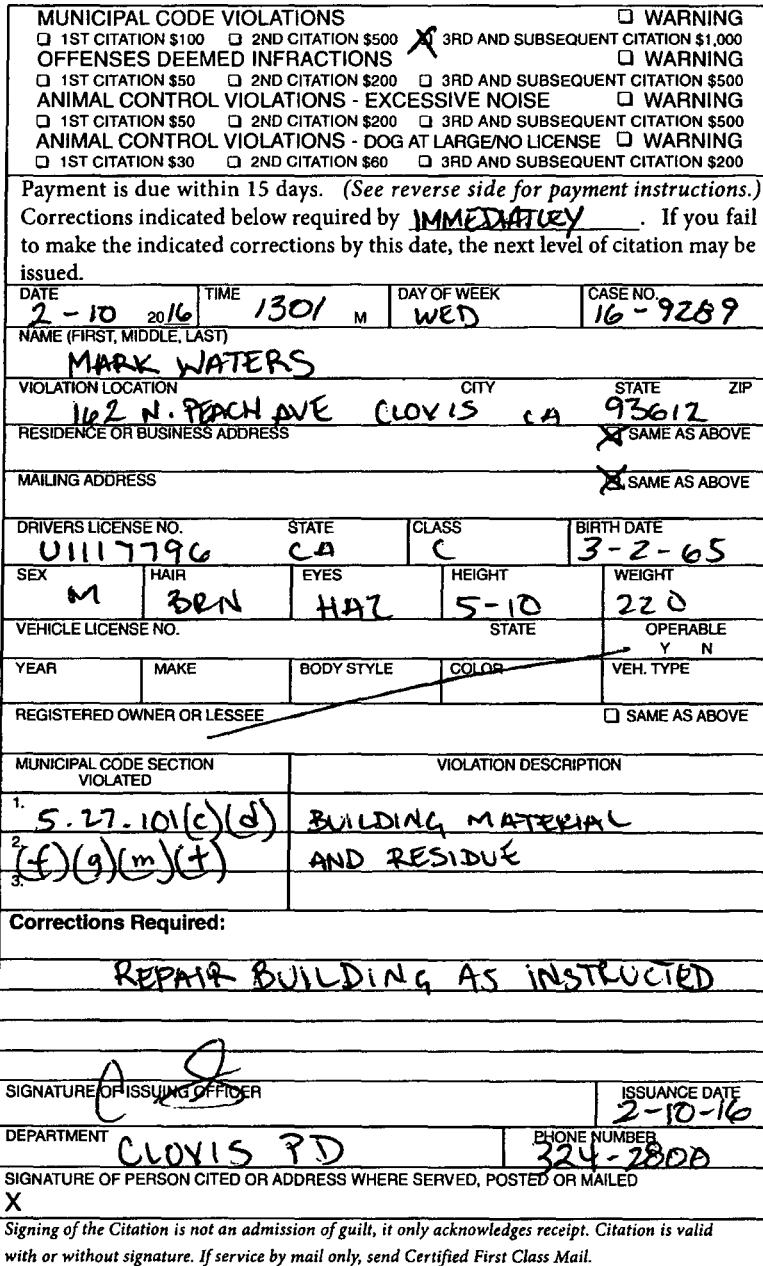 MUNICIPAL CODE VIOLATIONS ☐ WARNING
☐ 1ST CITATION $100 ☐ 2ND CITATION $500 ☒ 3RD AND SUBSEQUENT CITATION $1,000
OFFENSES DEEMED INFRACTIONS ☐ WARNING
☐ 1ST CITATION $50 ☐ 2ND CITATION $200 ☐ 3RD AND SUBSEQUENT CITATION $500
ANIMAL CONTROL VIOLATIONS - EXCESSIVE NOISE ☐ WARNING
☐ 1ST CITATION $50 ☐ 2ND CITATION $200 ☐ 3RD AND SUBSEQUENT CITATION $500
ANIMAL CONTROL VIOLATIONS - DOG AT LARGE/NO LICENSE ☐ WARNING
☐ 1ST CITATION $30 ☐ 2ND CITATION $60 ☐ 3RD AND SUBSEQUENT CITATION $200
Payment is due within 15 days. (See reverse side for payment instructions.)
Corrections indicated below required by IMMEDIATLEY. If you fail
to make the indicated corrections by this date, the next level of citation may be
issued.
DATE TIME DAY OF WEEK CASE NO.
2-10 2016 1301 M WED 16-9289
NAME (FIRST, MIDDLE, LAST)
MARK WATERS
VIOLATION LOCATION CITY STATE ZIP
162 N. PEACH AVE CLOVIS CA 93612
RESIDENCE OR BUSINESS ADDRESS ☒ SAME AS ABOVE
MAILING ADDRESS ☒ SAME AS ABOVE
DRIVERS LICENSE NO. STATE CLASS BIRTH DATE
U1117796 CA C 3-2-65
SEX HAIR EYES HEIGHT WEIGHT
M BRN HAZ 5-10 220
VEHICLE LICENSE NO. STATE OPERABLE
Y N
YEAR MAKE BODY STYLE COLOR VEH. TYPE
REGISTERED OWNER OR LESSEE ☐ SAME AS ABOVE
MUNICIPAL CODE SECTION VIOLATION DESCRIPTION
VIOLATED
1. 5.27.101(c)(d) BUILDING MATERIAL
2. (f)(g)(m)(t) AND RESIDUE
3.
Corrections Required:
REPAIR BUILDING AS INSTRUCTED
SIGNATURE OF ISSUING OFFICER ISSUANCE DATE
2-10-16
DEPARTMENT CLOVIS PD PHONE NUMBER
324-2800
SIGNATURE OF PERSON CITED OR ADDRESS WHERE SERVED, POSTED OR MAILED
X
Signing of the Citation is not an admission of guilt, it only acknowledges receipt. Citation is valid
with or without signature. If service by mail only, send Certified First Class Mail.